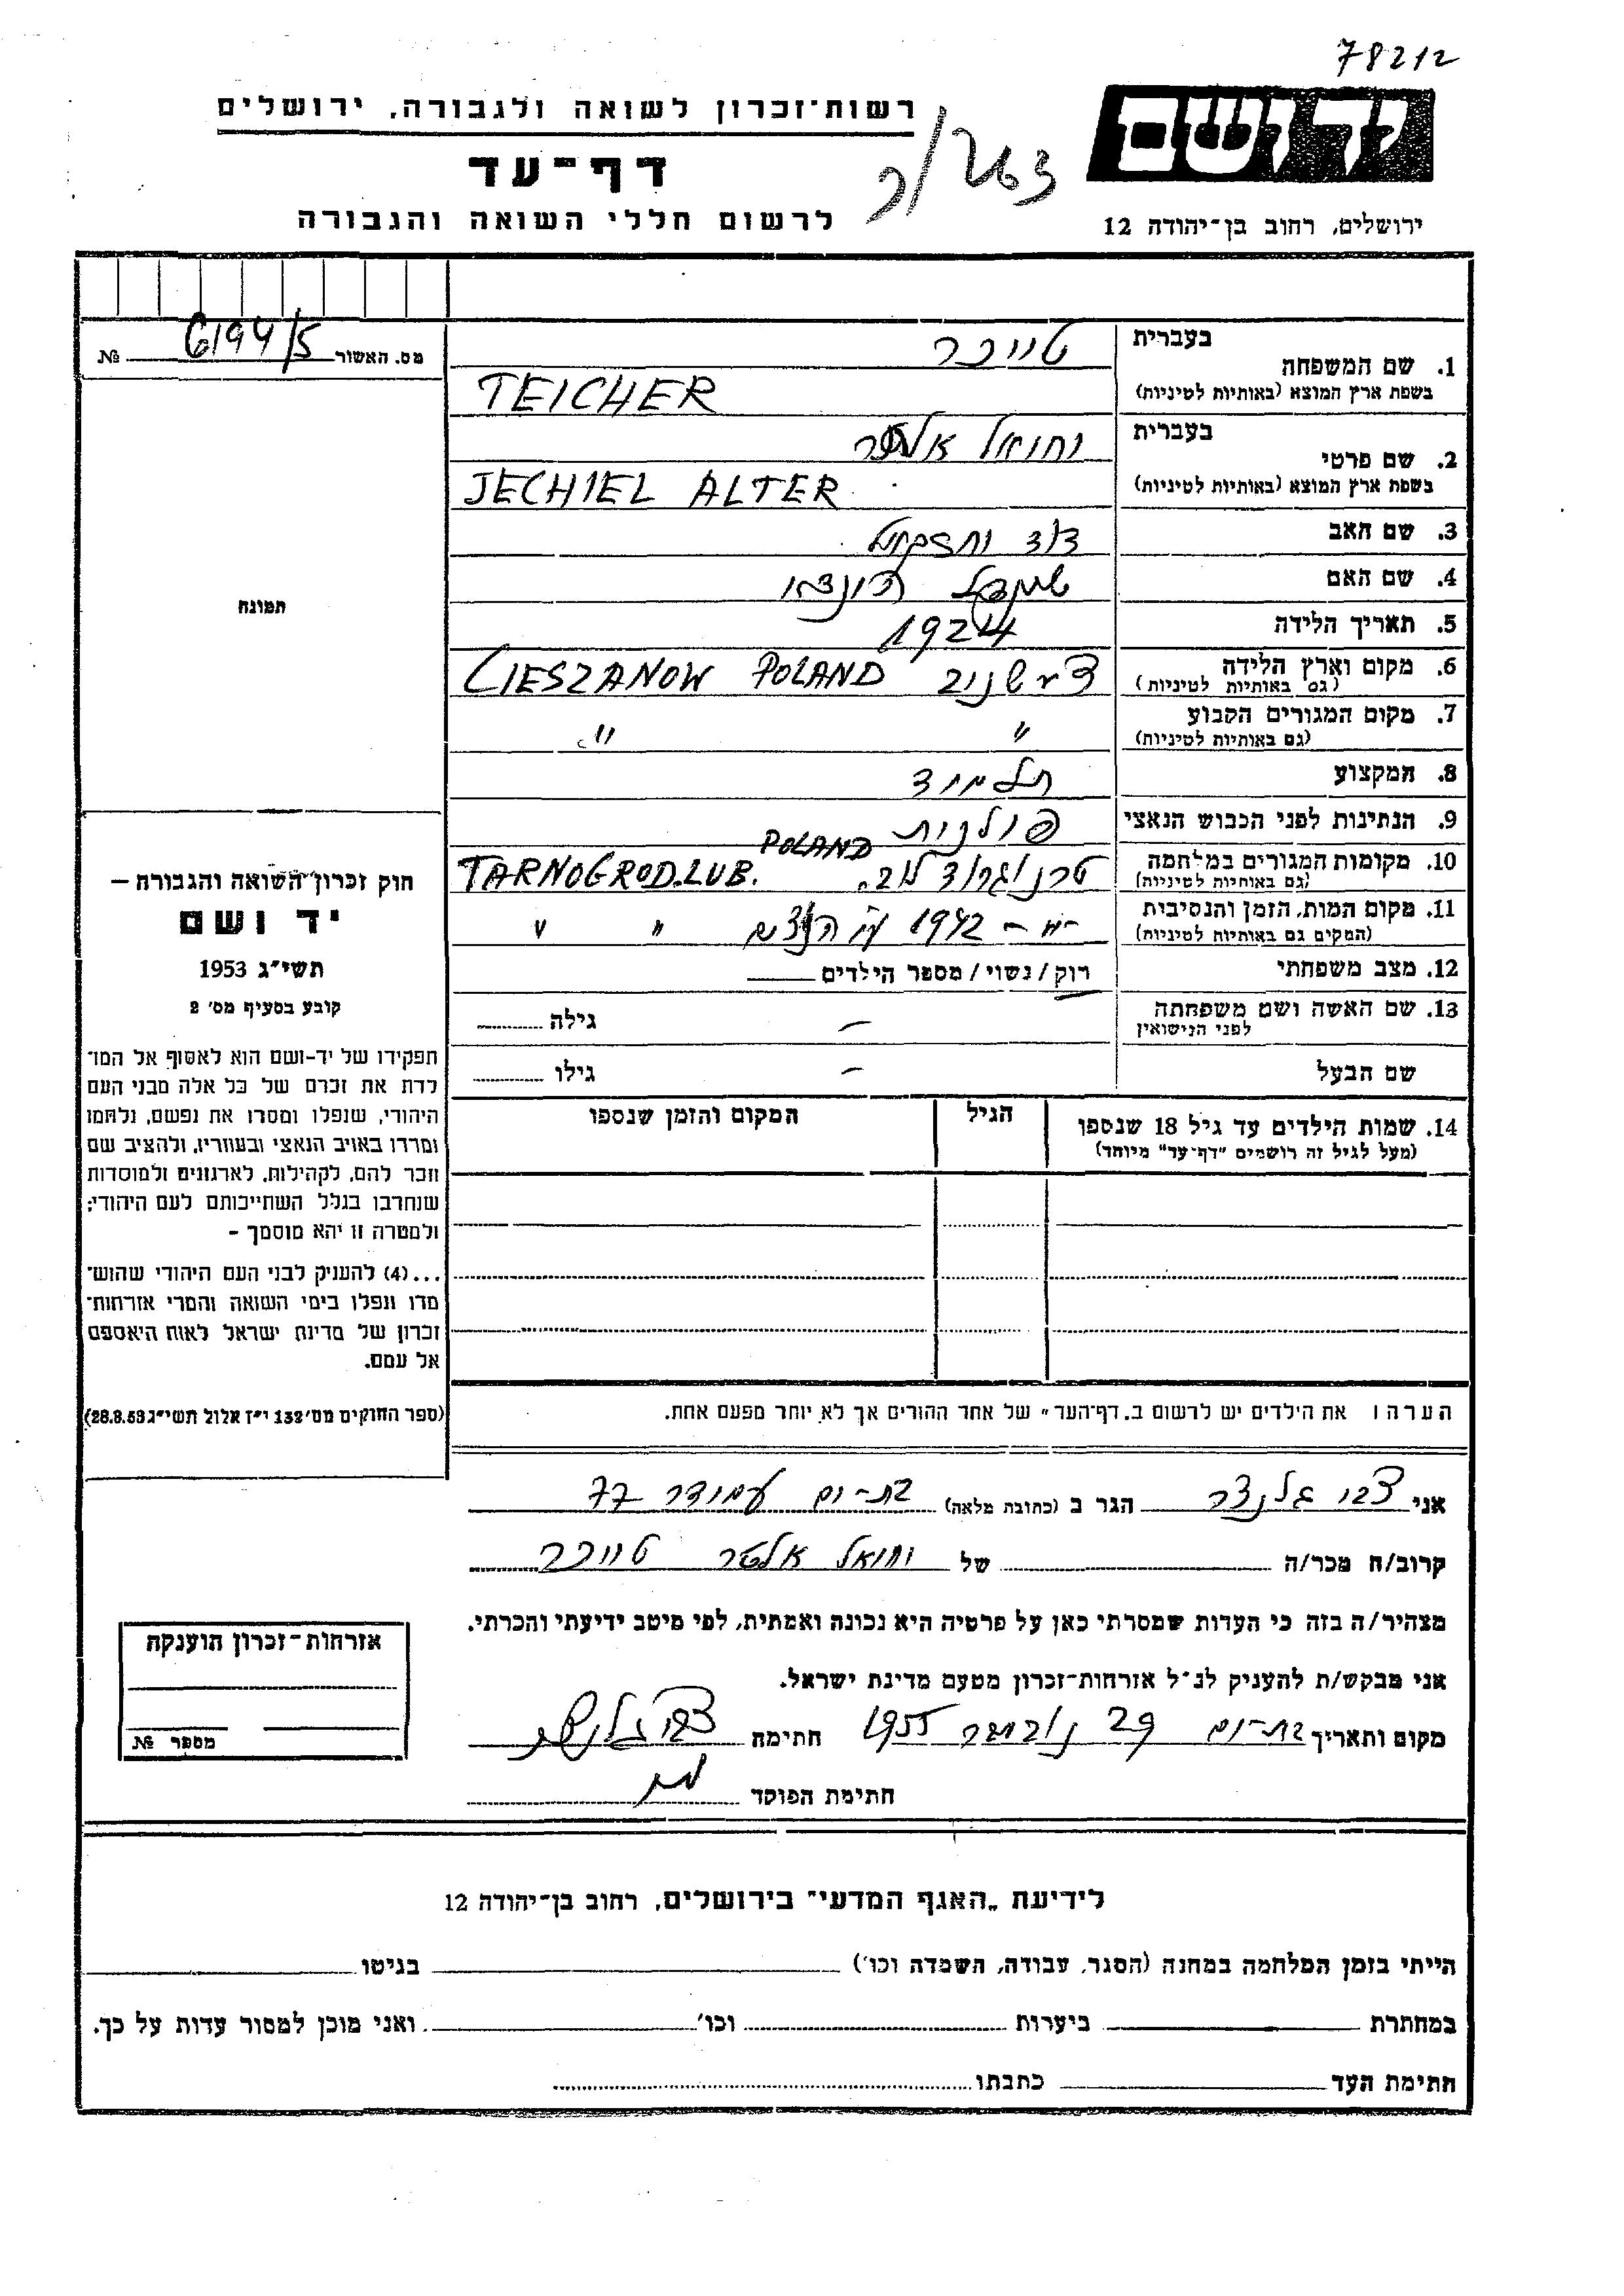 78212
רשות־זכרון לשואה ולגבורה, ירושלים
יד ושם
דף־עד
לרשום חללי השואה והגבורה
ירושלים, רחוב בן־יהודה 12
מס. האשור 6194/5 №
בעברית
1. שם המשפחה טייכר
בשפת ארץ המוצא (באותיות לטיניות) TEICHER
בעברית
2. שם פרטי יחיאל אלטר
בשפת ארץ המוצא (באותיות לטיניות) JECHIEL ALTER
3. שם האב דוד יחזקאל
4. שם האם
5. תאריך הלידה 1924
6. מקום וארץ הלידה צישנוב CIESZANOW POLAND
(גם באותיות לטיניות)
7. מקום המגורים הקבוע " "
(גם באותיות לטיניות)
8. המקצוע תלמיד
9. הנתינות לפני הכבוש הנאצי פולנית
10. מקומות המגורים במלחמה טרנוגרוד לוב. TARNOGROD.LUB. POLAND
(גם באותיות לטיניות)
11. מקום המות, הזמן והנסיבות 1942 ע"י הנאצים " "
(המקים גם באותיות לטיניות)
12. מצב משפחתי רוק/נשוי/מספר הילדים
13. שם האשה ושם משפחתה — גילה
לפני הנישואין
שם הבעל — גילו
14. שמות הילדים עד גיל 18 שנספו הגיל המקום והזמן שנספו
(מעל לגיל זה רושמים "דף־עד" מיוחד)
הערה: את הילדים יש לרשום ב„דף־העד" של אחד ההורים אך לא יותר מפעם אחת.
תמונה
חוק זכרון השואה והגבורה —
יד ושם
תשי״ג 1953
קובע בסעיף מס׳ 2
תפקידו של יד-ושם הוא לאסוף אל המו־
לדת את זכרם של כל אלה מבני העם
היהודי, שנפלו ומסרו את נפשם, נלחמו
ומרדו באויב הנאצי ובעוזריו, ולהציב שם
וזכר להם, לקהילות, לארגונים ולמוסדות
שנחרבו בגלל השתייכותם לעם היהודי;
ולמטרה זו יהא מוסמך –
...(4) להעניק לבני העם היהודי שהוש־
מדו ונפלו בימי השואה והמרי אזרחות־
זכרון של מדינת ישראל לאות היאספם
אל עמם.
(ספר החוקים מס׳ 132 י״ז אלול תשי״ג 28.8.53)
אני צבי גלנצר הגר ב (כתובת מלאה) בת-ים עמידר 77
קרוב/ה מכר/ה של יחיאל אלטר טייכר
מצהיר/ה בזה כי העדות שמסרתי כאן על פרטיה היא נכונה ואמתית, לפי מיטב ידיעתי והכרתי.
אני מבקש/ת להעניק לנ״ל אזרחות-זכרון מטעם מדינת ישראל.
מקום ותאריך בת-ים 29 נובמבר 1955 חתימה
חתימת הפוקד
אזרחות-זכרון הוענקה
מספר №
לידיעת „האגף המדעי" בירושלים, רחוב בן־יהודה 12
הייתי בזמן המלחמה במחנה (הסגר, עבודה, השמדה וכו׳) בגיטו
במחתרת ביערות וכו׳ ואני מוכן למסור עדות על כך.
חתימת העד כתבתו